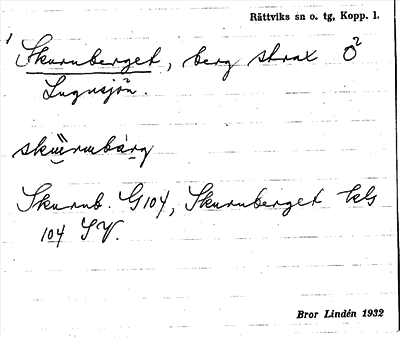 Rättviks sn o. tg, Kopp. l.
1 Skurnberget, berg strax Ö 2
Lugnsjön.
Skurnb. G104, Skurnberget kls
104 SV.
Bror Lindén 1932